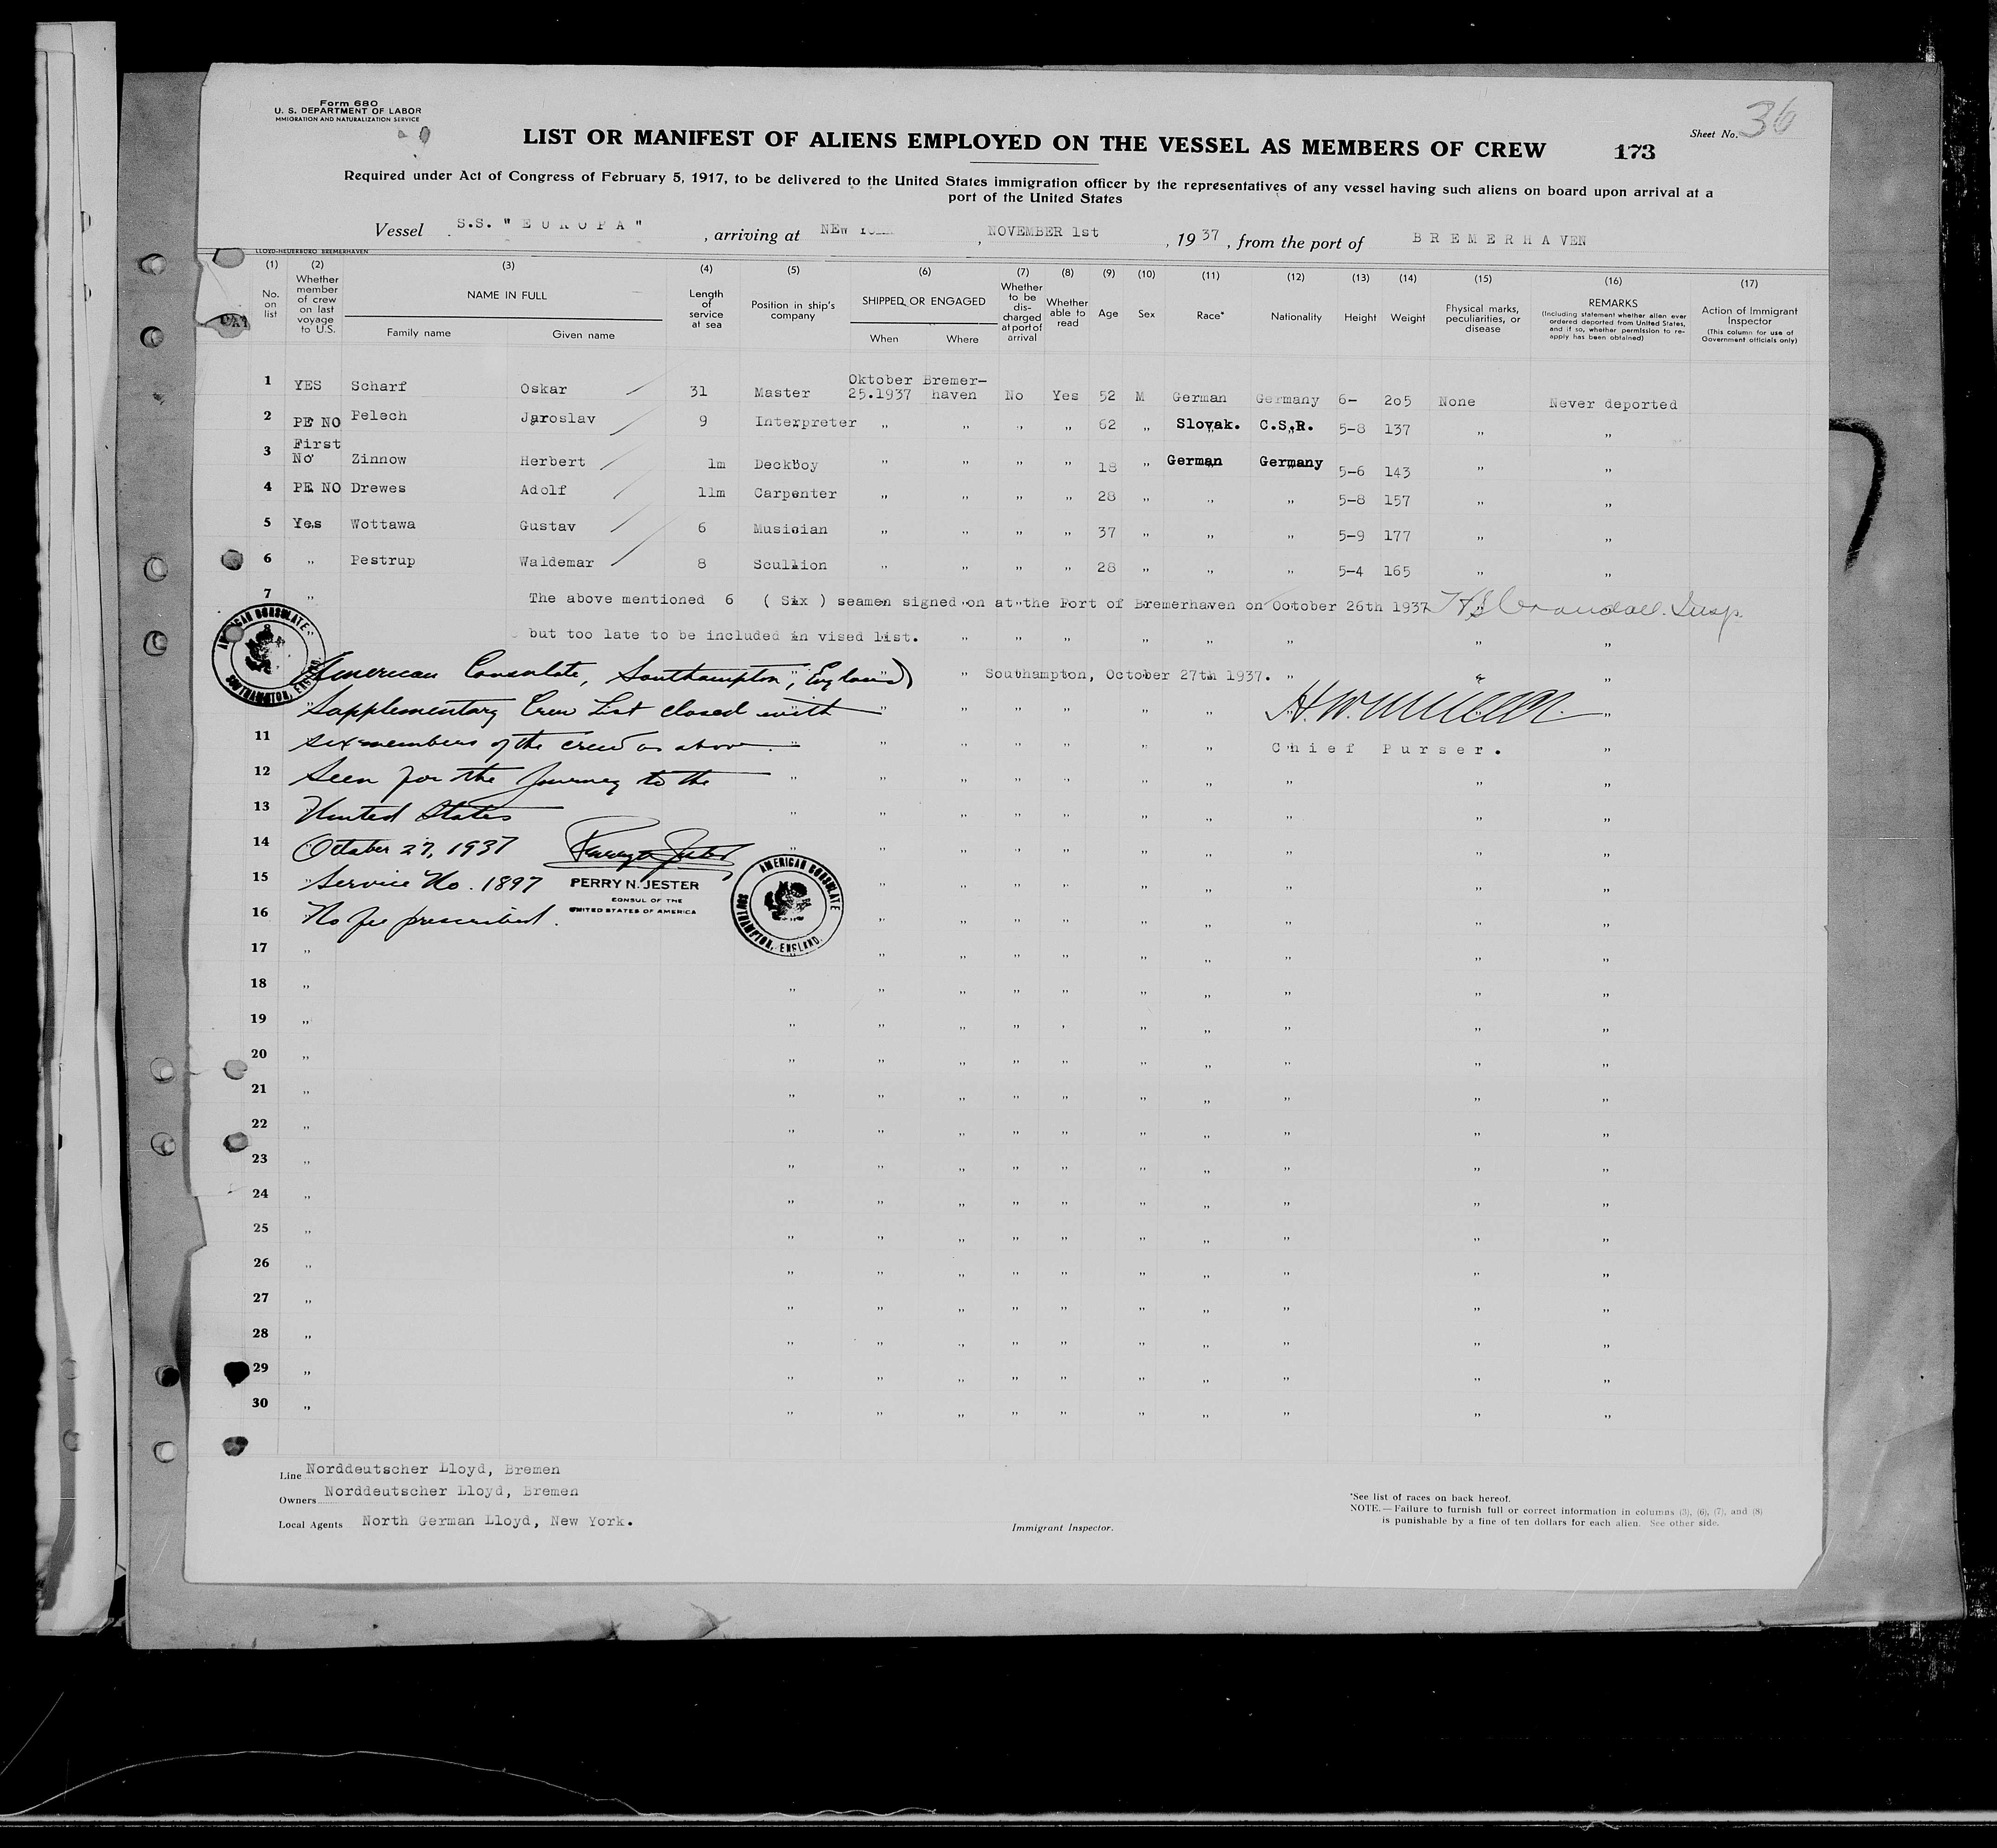 Form 680
U. S. DEPARTMENT OF LABOR
MMIGRATION AND NATURALIZATION SERVICE
Sheet No. 36
LIST OR MANIFEST OF ALIENS EMPLOYED ON THE VESSEL AS MEMBERS OF CREW 173
Required under Act of Congress of February 5, 1917, to be delivered to the United States immigration officer by the representatives of any vessel having such aliens on board upon arrival at a
port of the United States
Vessel S.S. " E U R O P A " , arriving at NEW YORK , NOVEMBER 1st , 19 37 , from the port of B R E M E R H A VEN
LLOYD-HEUERBÜRO BREMERHAVEN
(1) (2) (3) (4) (5) (6) (7) (8) (9) (10) (11) (12) (13) (14) (15) (16) (17)
No. on list
Whether member of crew on last voyage to U.S.
NAME IN FULL
Family name Given name
Length of service at sea
Position in ship's company
SHIPPED OR ENGAGED
When Where
Whether to be discharged at port of arrival
Whether able to read
Age
Sex
Race*
Nationality
Height
Weight
Physical marks, peculiarities, or disease
REMARKS
(Including statement whether alien ever ordered deported from United States, and if so, whether permission to reapply has been obtained)
Action of Immigrant Inspector
(This column for use of Government officials only)
1 YES Scharf Oskar 31 Master Oktober 25.1937 Bremer-haven No Yes 52 M German Germany 6- 205 None Never deported
2 PE NO Pelech Jaroslav 9 Interpreter " " " " 62 " Slovak. C.S.R. 5-8 137 " "
3 First No Zinnow Herbert 1m Deckboy " " " " 18 " German Germany 5-6 143 " "
4 PE NO Drewes Adolf 11m Carpenter " " " " 28 " " " 5-8 157 " "
5 Yes Wottawa Gustav 6 Musician " " " " 37 " " " 5-9 177 " "
6 " Pestrup Waldemar 8 Scullion " " " " 28 " " " 5-4 165 " "
7 " The above mentioned 6 ( Six ) seamen signed on at the Port of Bremerhaven on October 26th 1937 Crandall. Insp.
but too late to be included in vised list.
AMERICAN CONSULATE SOUTHAMPTON, ENGLAND
American Consulate, Southampton, England Southampton, October 27th 1937.
Supplementary Crew List closed with H. W. Müller
11 six members of the crew as above. Chief Purser.
12 Seen for the Journey to the
13 United States
14 October 27, 1937 Perry N. Jester
15 Service No. 1897 PERRY N. JESTER
CONSUL OF THE
UNITED STATES OF AMERICA
16 No fee prescribed.
AMERICAN CONSULATE SOUTHAMPTON, ENGLAND.
17 "
18 "
19 "
20 "
21 "
22 "
23 "
24 "
25 "
26 "
27 "
28 "
29 "
30 "
Line Norddeutscher Lloyd, Bremen
Owners Norddeutscher Lloyd, Bremen
Local Agents North German Lloyd, New York.
Immigrant Inspector.
*See list of races on back hereof.
NOTE.—Failure to furnish full or correct information in columns (3), (6), (7), and (8)
is punishable by a fine of ten dollars for each alien. See other side.